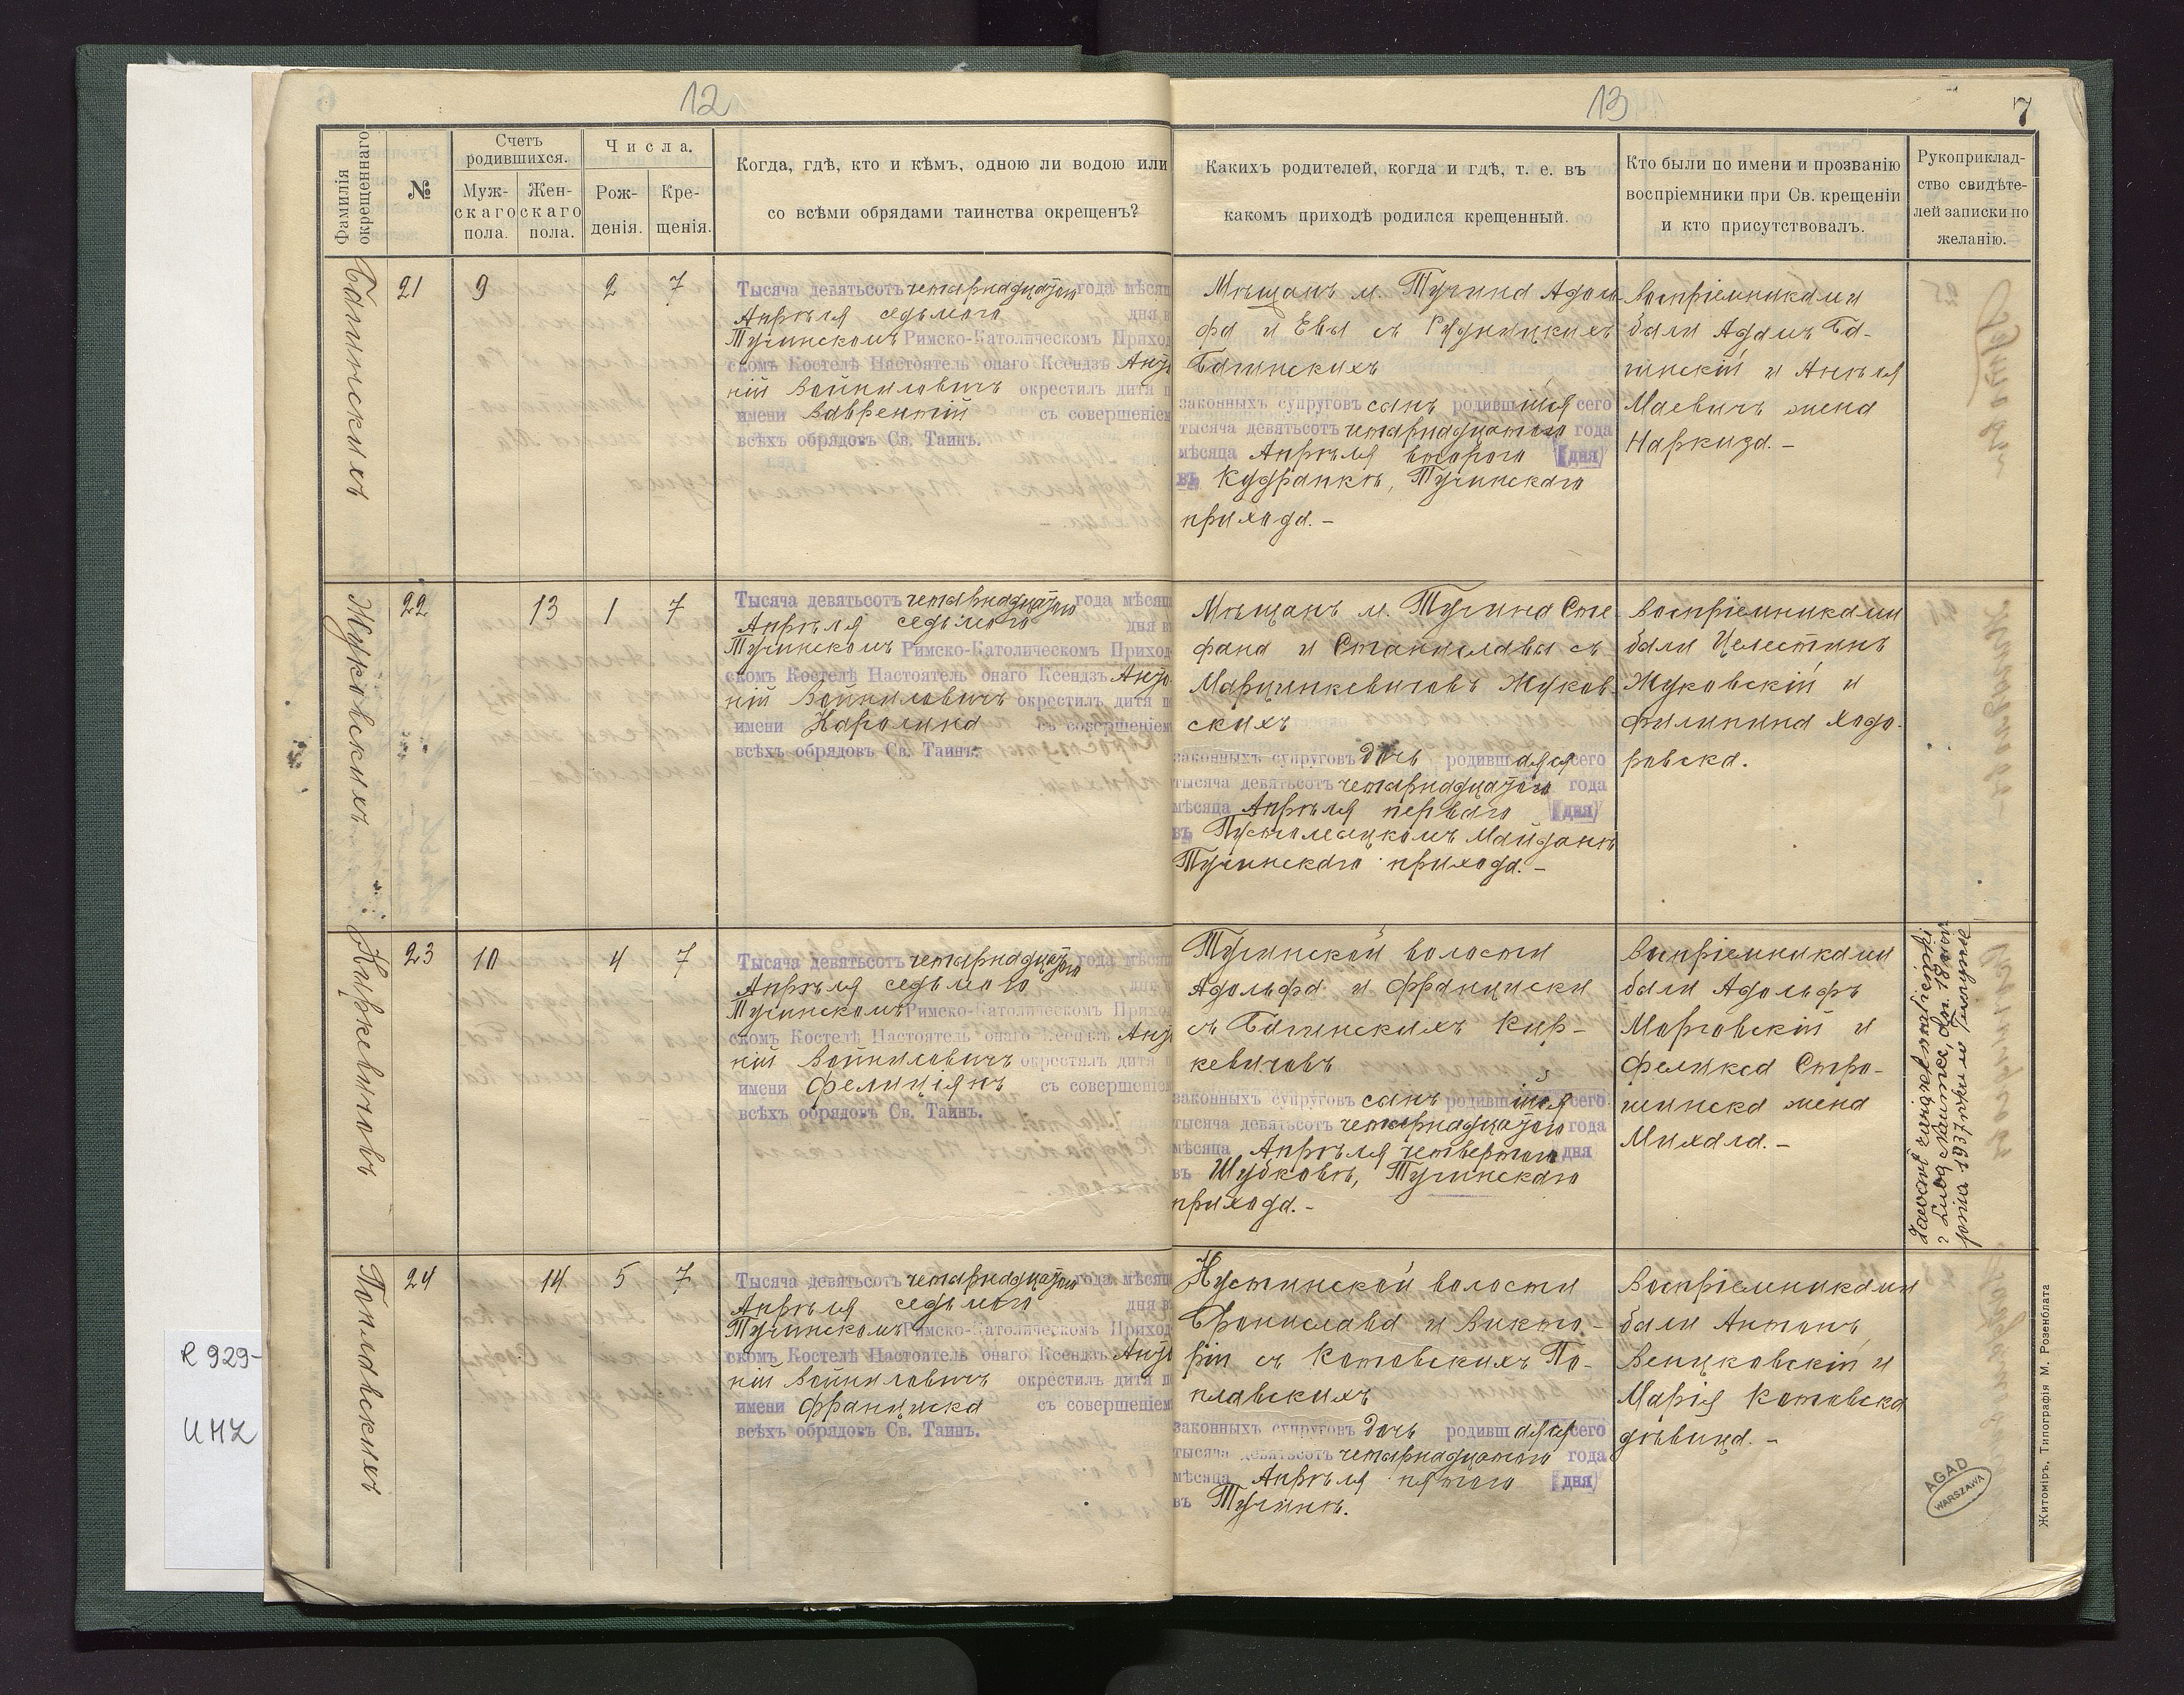 12
13
7
Фамилія окрещеннаго.
№
Счетъ родившихся.
Муж-
скаго
пола.
Жен-
скаго
пола.
Числа.
Рож-
денія.
Кре-
щенія.
Когда, гдѣ, кто и кѣмъ, одною ли водою или
со всѣми обрядами таинства окрещенъ?
Какихъ родителей, когда и гдѣ, т. е. въ
какомъ приходѣ родился крещенный.
Кто были по имени и прозванію
воспріемники при Св. крещеніи
и кто присутствовалъ.
Рукоприклад-
ство свидѣте-
лей записки по
желанію.
Багинскихъ
21
9
2
7
Тысяча девятьсотъ четырнадцатого года мѣсяц
Апрѣля седьмого дня в
Тучинскомъ Римско-Католическомъ Приход
скомъ Костелѣ Настоятель онаго Ксендзъ Анто
ній Войниловичъ окрестилъ дитя п
имени Лаврентій съ совершеніем
всѣхъ обрядовъ Св. Таинъ.
Мѣщанъ м. Тучина Адоль
фа и Евы съ Рудницкихъ
Багинскихъ
законныхъ супруговъ сынъ родившійся сего
тысяча девятьсотъ четырнадцатого года
мѣсяца Апрѣля второго дня
въ Кудранкѣ, Тучинскаго
прихода. –
Воспріемниками
были Адамъ Ба-
гинскій и Анеля
Маевичъ жена
Наркиза. –
Жуковскихъ
22
13
1
7
Тысяча девятьсотъ четырнадцатого года мѣсяц
Апрѣля седьмого дня в
Тучинскомъ Римско-Католическомъ Приход
скомъ Костелѣ Настоятель онаго Ксендзъ Анто
ній Войниловичъ окрестилъ дитя п
имени Каролина съ совершеніем
всѣхъ обрядовъ Св. Таинъ.
Мѣщанъ м. Тучина Сте
фана и Станиславы съ
Марцинкевичовъ Жуков
скихъ
законныхъ супруговъ дочь родившаяся сего
тысяча девятьсотъ четырнадцатого года
мѣсяца Апрѣля перваго дня
въ Пустомыцкомъ Майданѣ
Тучинскаго прихода. –
Воспріемниками
были Целестинъ
Жуковскій и
Филипина Ходо-
ровска.
Киркевичовъ
23
10
4
7
Тысяча девятьсотъ четырнадцатого года мѣсяц
Апрѣля седьмого дня в
Тучинскомъ Римско-Католическомъ Приход
скомъ Костелѣ Настоятель онаго Ксендзъ Анто
ній Войниловичъ окрестилъ дитя п
имени Фелиціянъ съ совершеніем
всѣхъ обрядовъ Св. Таинъ.
Тучинской волости
Адольфа и Франциски
съ Багинскихъ Кир-
кевичовъ
законныхъ супруговъ сынъ родившійся сего
тысяча девятьсотъ четырнадцатого года
мѣсяца Апрѣля четвертого дня
въ Шубковѣ, Тучинскаго
прихода. –
Воспріемниками
были Адольфъ
Марговскій и
Феликса Стро-
шинска жена
Михала. –
Zawarł związek małżeński
1937 roku w Tuczynie
Поплавскихъ
24
14
5
7
Тысяча девятьсотъ четырнадцатого года мѣсяц
Апрѣля седьмого дня в
Тучинскомъ Римско-Католическомъ Приход
скомъ Костелѣ Настоятель онаго Ксендзъ Анто
ній Войниловичъ окрестилъ дитя п
имени Франциска съ совершеніем
всѣхъ обрядовъ Св. Таинъ.
Кустинской волости
Бронислава и Викто-
ріи съ Котовскихъ По-
плавскихъ
законныхъ супруговъ дочь родившаяся сего
тысяча девятьсотъ четырнадцатого года
мѣсяца Апрѣля пятого дня
въ Тучинѣ.
Воспріемниками
были Антонъ
Венцковскій и
Марія Котовска
дѣвица. –
AGAD
WARSZAWA
Житоміръ, Типографія М. Розенблата
R 929-
UMZ